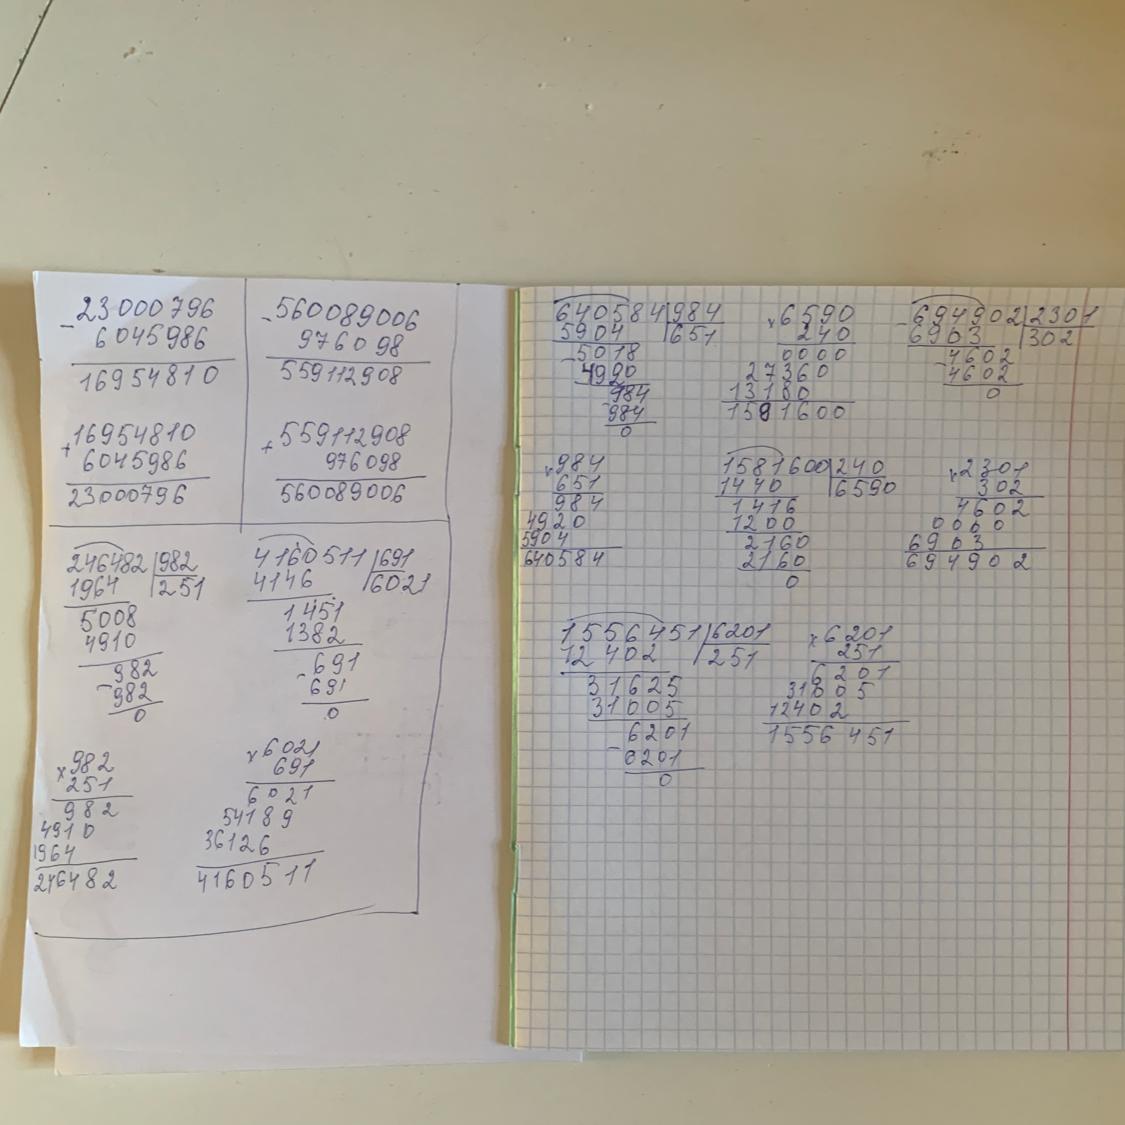 -23000796
6045986
16954810
+16954810
6045986
23000796
-560089006
976098
559112908
+559112908
976098
560089006
246482|982
1964 |251
5008
4910
982
-982
0
4160511|691
4146 |6021
1451
1382
691
-691
0
x982
251
982
4910
1964
246482
x6021
691
6021
54189
36126
4160511
640584|984
5904 |651
-5018
4920
984
-984
0
x6590
240
0000
27360
13180
1581600
-694902|2301
6903 |302
-4602
4602
0
x984
651
984
4920
5904
640584
1581600|240
1440 |6590
1416
1200
2160
2160
0
x2301
302
4602
0000
6903
694902
1556451|6201
12402 |251
31625
31005
6201
-6201
0
x6201
251
6201
31005
12402
1556451